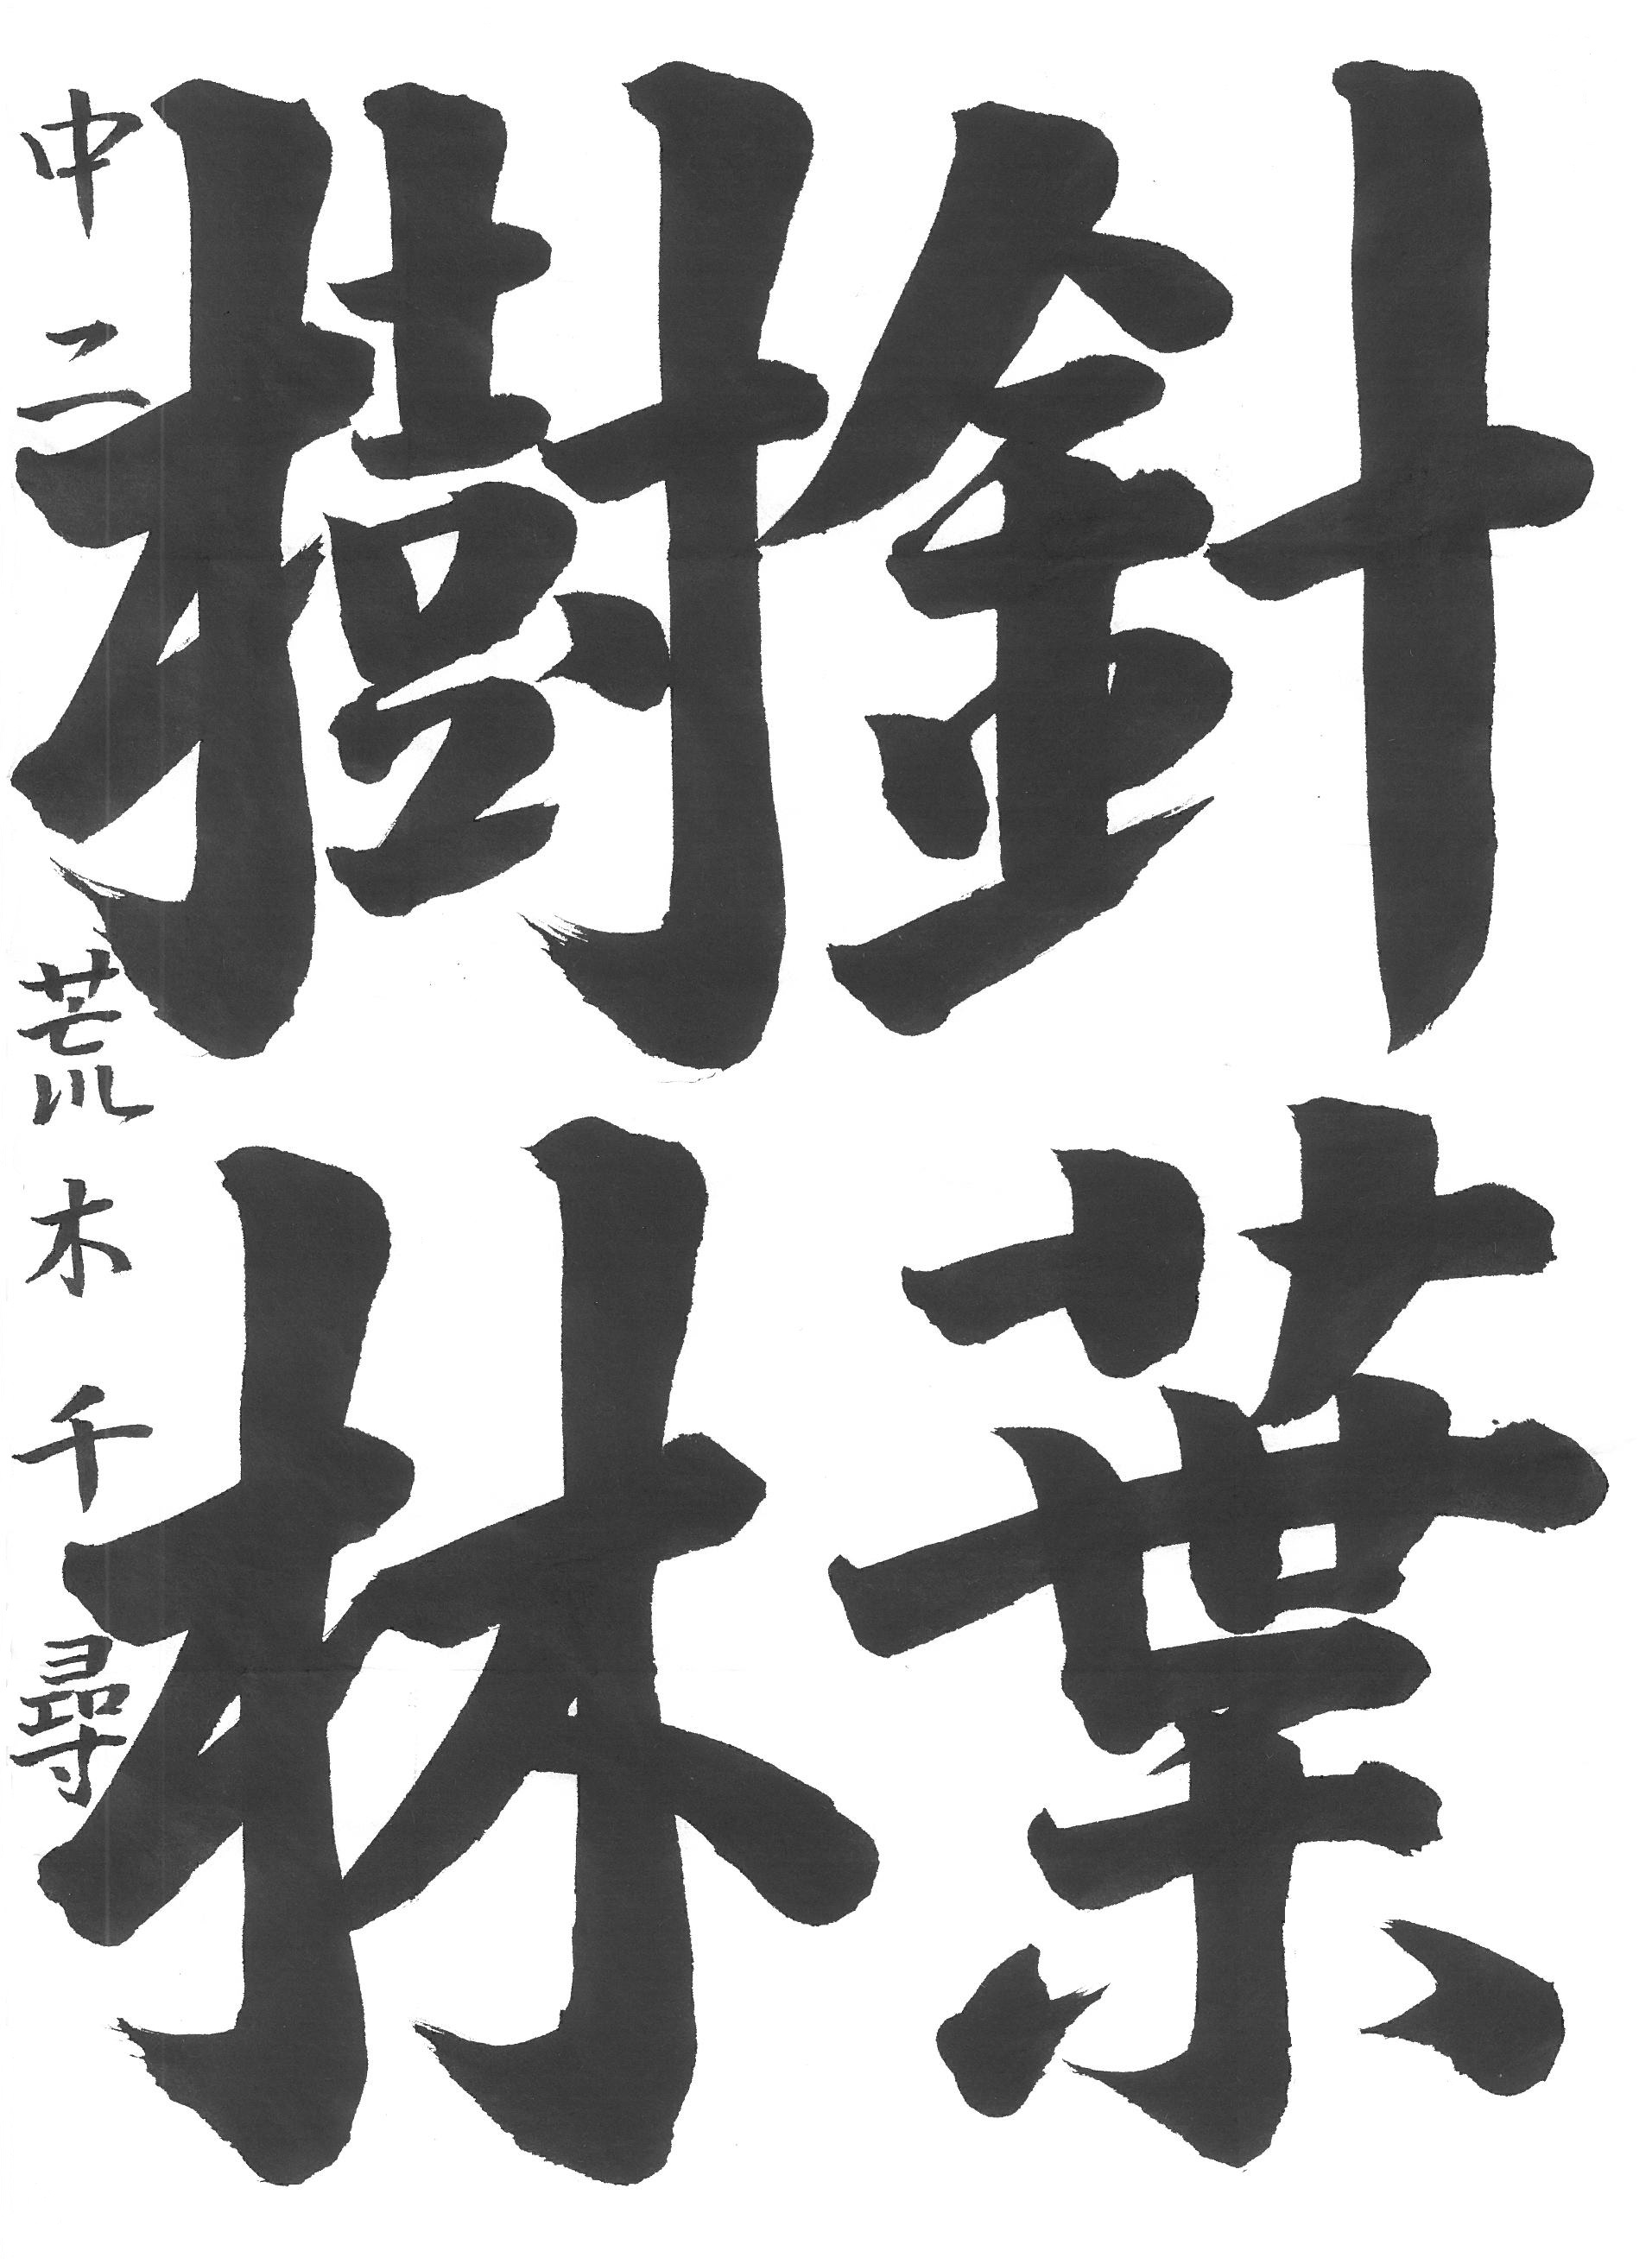 針葉
樹林
中二 荒木千尋